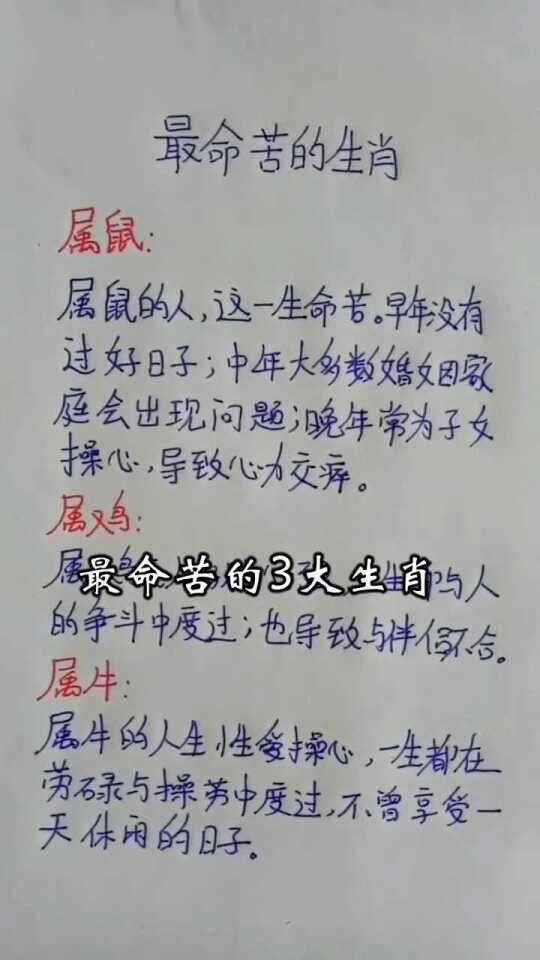 最命苦的生肖
属鼠:
属鼠的人,这一生命苦。早年没有
过好日子;中年大多数婚姻家
庭会出现问题;晚年常为子女
操心,导致心力交瘁。
属鸡:
属
最命苦的3大生肖
与人
的争斗中度过;也导致与伴侣不合。
属牛:
属牛的人生性爱操心,一生都在
劳碌与操劳中度过,不曾享受一
天休闲的日子。